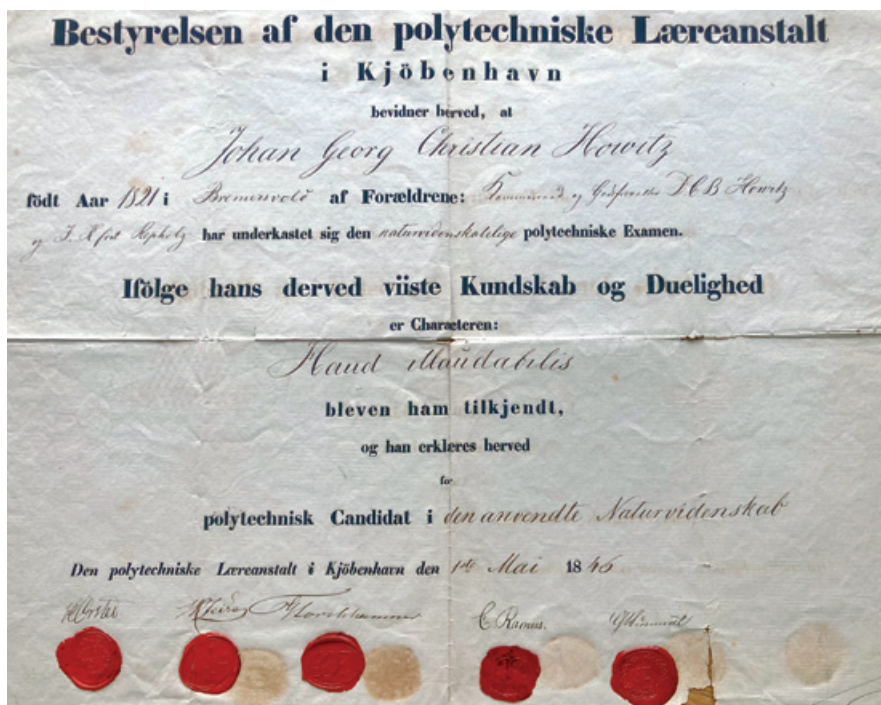 Bestyrelsen af den polytechniske Læreanstalt
i Kjöbenhavn
bevidner herved, at
Johan Georg Christian Howitz
födt Aar 1821 i Bremervold af Forældrene: D C B Howitz
og har underkastet sig den naturvidenskabelige polytechniske Examen.
Ifölge hans derved viiste Kundskab og Duelighed
er Characteren:
Haud illaudabilis
bleven ham tilkjendt,
og han erklæres herved
for
polytechnisk Candidat i den anvendte Naturvidenskab
Den polytechniske Læreanstalt i Kjöbenhavn den 1ste Mai 1846
Forchhammer C Ramus.